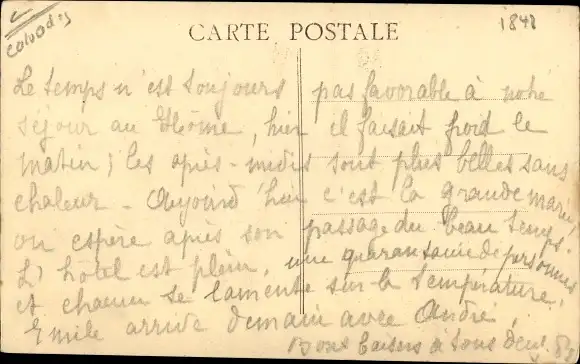 Calvados
1841
CARTE POSTALE
Le temps n'est toujours pas favorable à notre
séjour au Hôme, hier il faisait froid le
matin; les après-midis sont plus belles sans
chaleur - Aujourd'hui c'est la grande marée,
on espère après son passage du beau temps.
L'hôtel est plein, une quarantaine de personnes
et chacun se lamente sur la température.
Emile arrive demain avec André,
Bons baisers à tous deux.